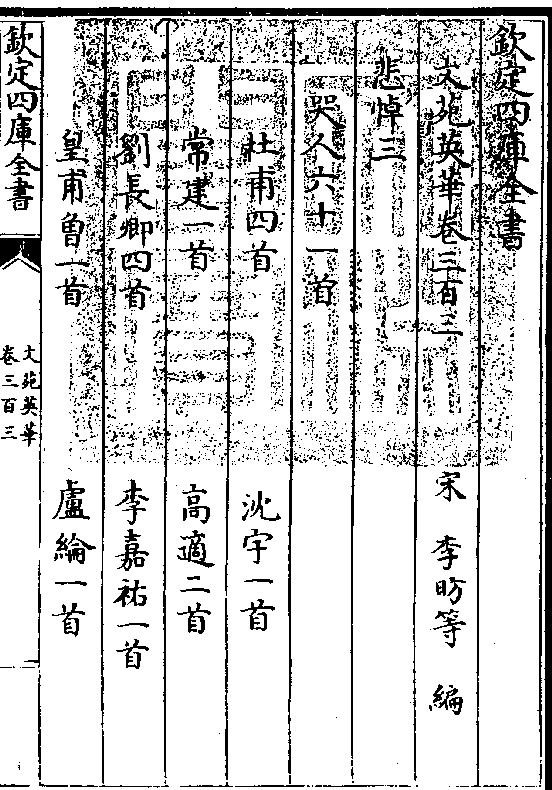 欽定四庫全書
文苑英華卷三百三
宋 李昉等 編
悲悼三
哭人六十一首
杜甫四首 沈宇一首
常建一首 高適二首
劉長卿四首 李嘉祐一首
皇甫曾一首 盧綸一首
欽定四庫全書
文苑英華
卷三百三